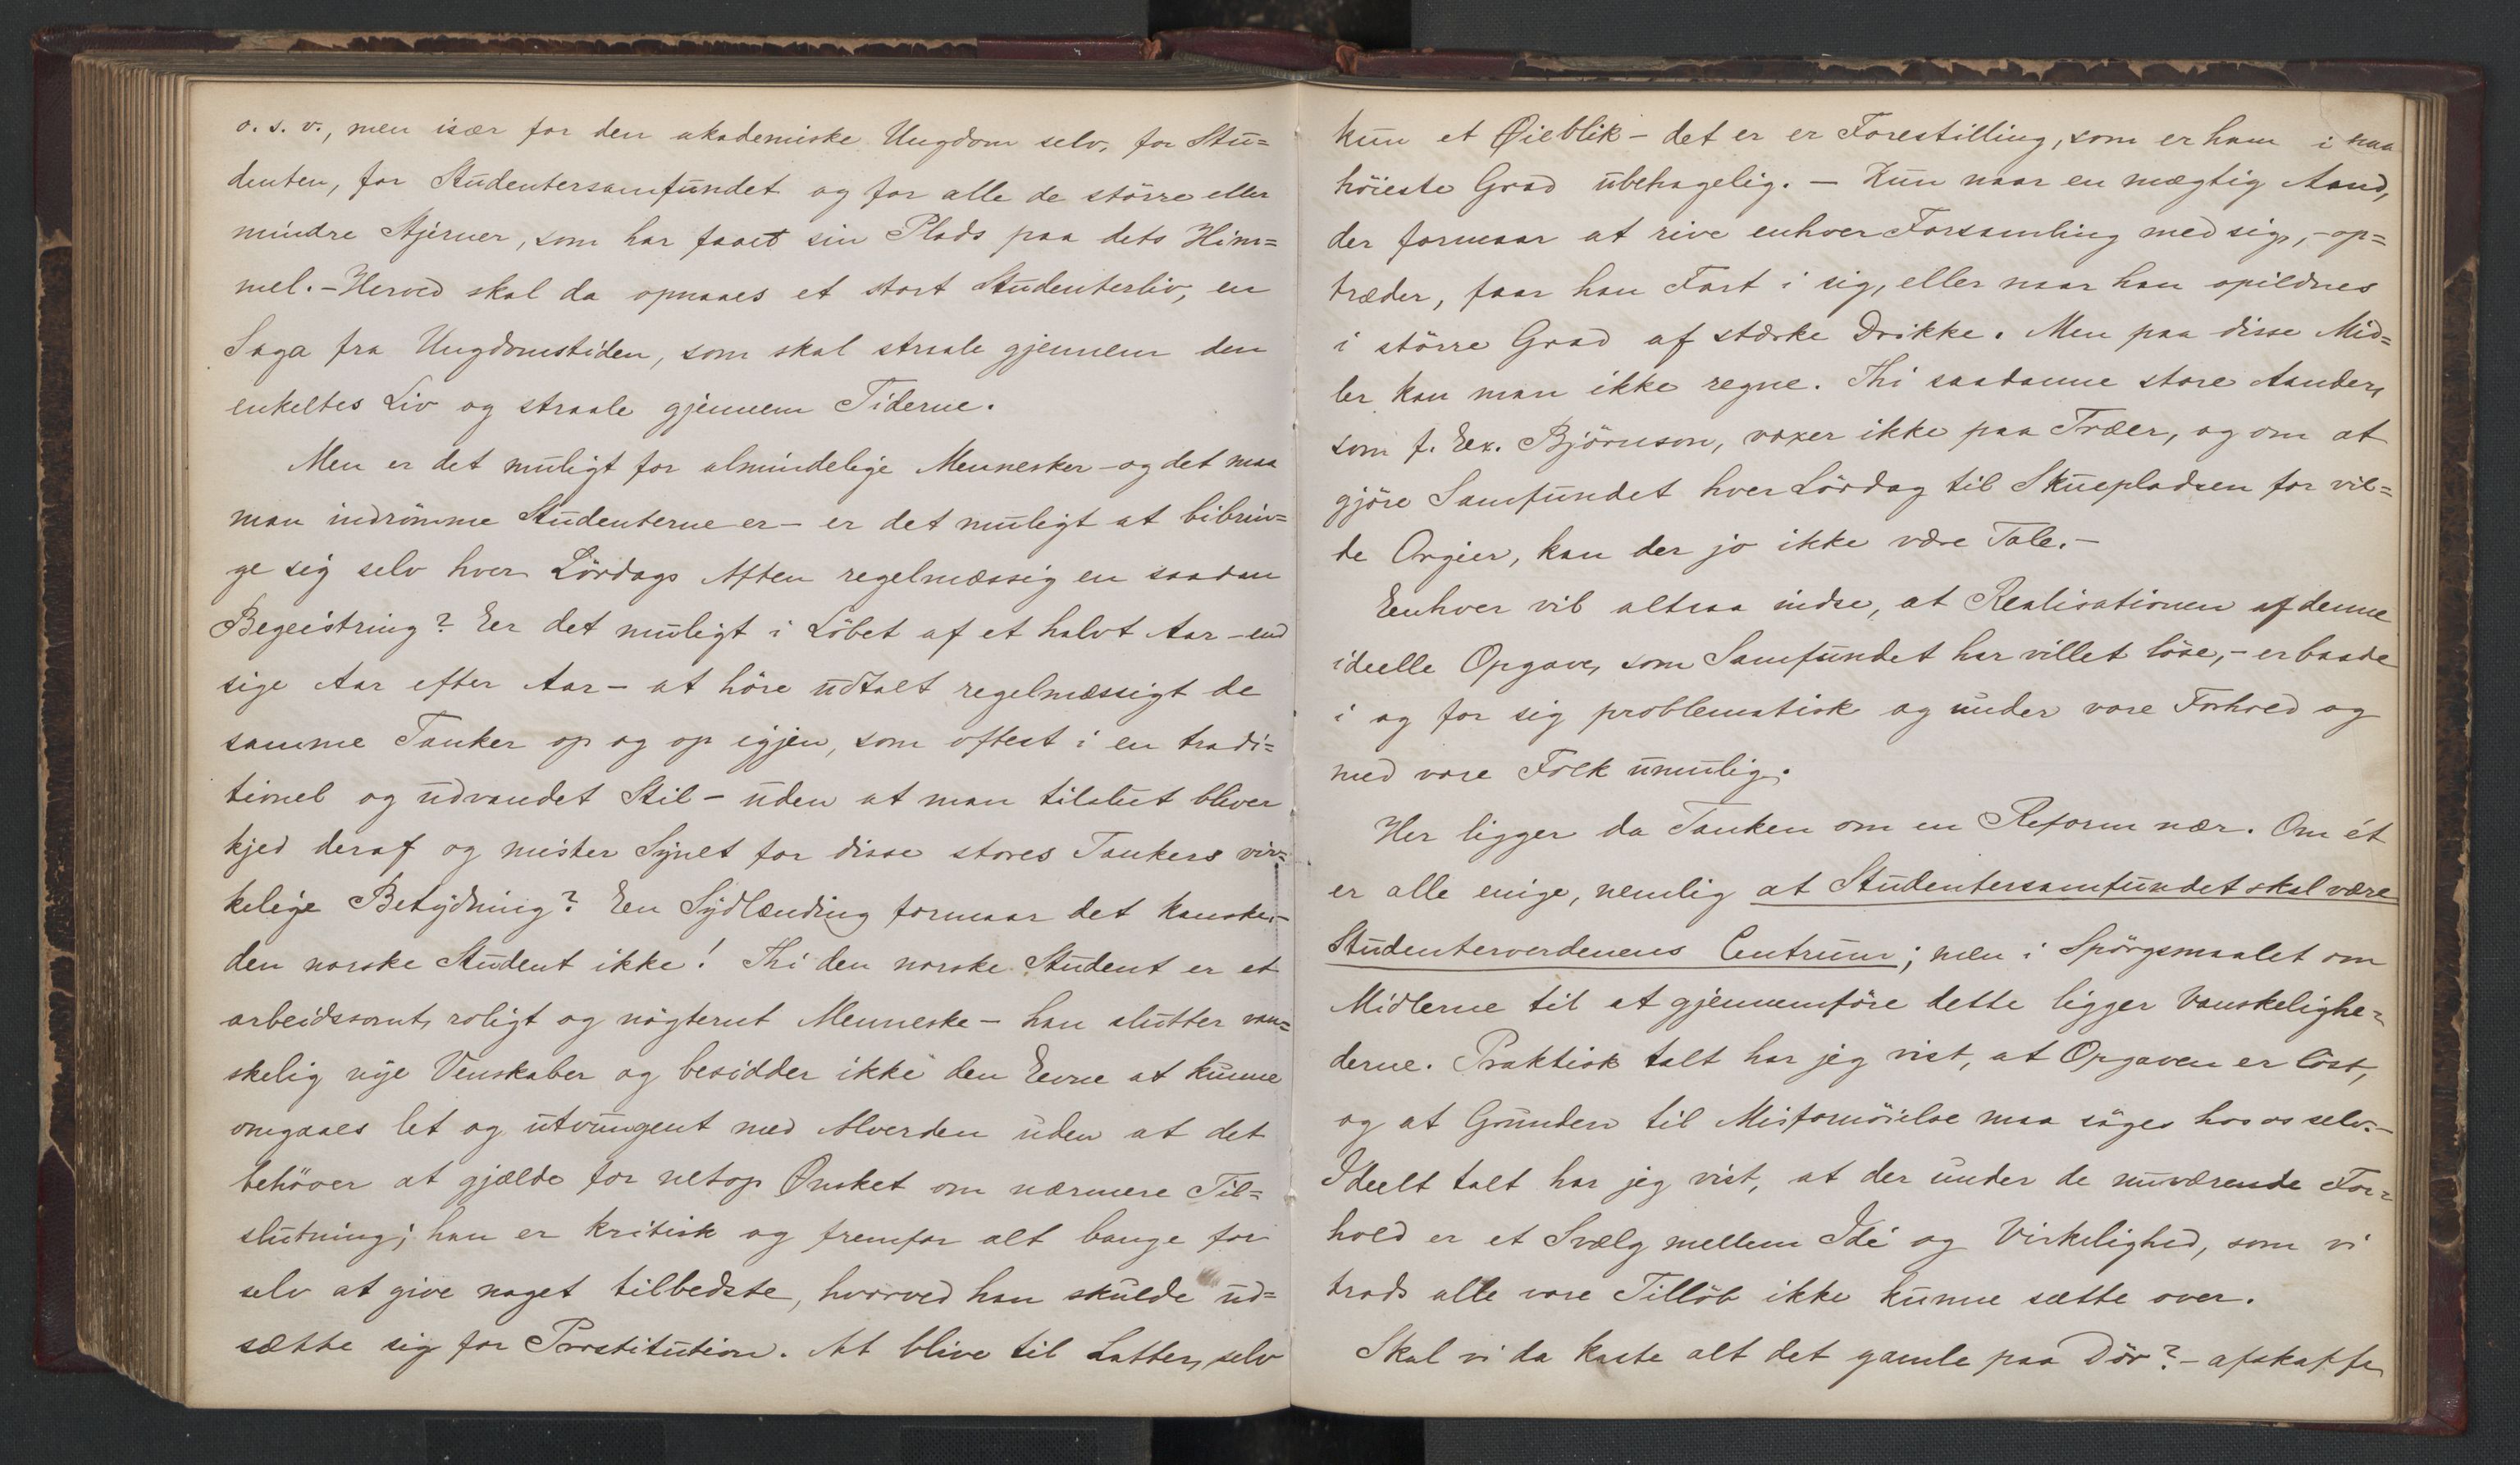 o. s. v., men især for den akademiske Ungdom selv, for Stu=
denten, for Studentersamfundet og for alle de större eller
mindre Stjerner, som har faaet sin Plads paa dets Him=
mel. – Herved skal da opnaaes et stort Studenterliv, en
Saga fra Ungdomstiden, som skal straale gjennem den
enkeltes Liv og straale gjennem Tiderne.
Men er det muligt for almindelige Mennesker – og det maa
man indrömme Studenterne er – er det muligt at bibrin=
ge sig selv hver Lördags Aften regelmæssig en saadan
Begeistring? Eer det muligt i Löbet af et halvt Aar – end
sige Aar efter Aar – at höre udtalt regelmæssigt de
samme Tanker op og op igjen, som oftest i en tradi=
tionel og udvandet Stil – uden at man tilslut bliver
kjed deraf og mister Synet for disse stores Tankers vir=
kelige Betydning? Een Sydlænding formaar det kanske, –
den norske Student ikke! Thi den norske Student er et
arbeidssomt, roligt og nögternt Menneske – han slutter van=
skelig nye Venskaber og besidder ikke den Eevne at kunne
omgaaes let og utvungent med Alverden uden at det
behöver at gjælde for netop Önsket om nærmere Til=
slutning; han er kritisk og fremfor alt bange for
selv at give noget tilbedste, hvorved han skulde ud=
sætte sig for Prostitution. At blive til Latter, selv
kun et Øieblik – det er er Forestilling, som er ham i
höieste Grad ubehagelig. – Kun naar en mægtig Aand,
der formaar at rive enhver Forsamling med sig, – op=
træder, faar han Fart i sig, eller naar han opildnes
i större Grad af stærke Drikke. Men paa disse Mid=
ler kan man ikke regne. Thi saadanne store Aander,
som f. Eex. Björnson, voxer ikke paa Træer, og om at
gjöre Samfundet hver Lördag til Skuepladsen for vil=
de Orgier, kan der jo ikke være Tale. –
Eenhver vil altsaa indse, at Realisationen af denne
ideelle Opgave, som Samfundet har villet löse, – er baade
i og for sig problematisk og under vore Forhold og
med vore Folk umulig.
Her ligger da Tanken om en Reform nær. Om ét
er alle enige, nemlig at Studentersamfundet skal være
Studenterverdenens Centrum; men i Spörgsmaalet om
Midlerne til at gjennemföre dette ligger Vanskelighe=
derne. Praktisk talt har jeg vist, at Opgaven er löst,
og at Grunden til Misfornöielse maa söges hos os selv. –
Ideelt talt har jeg vist, at der under de nuværende For=
hold er et Svælg mellem Idé og Virkelighed, som vi
trods alle vore Tillöb ikke kunne sætte over.
Skal vi da kaste alt det gamle paa Dör? – afskaffe